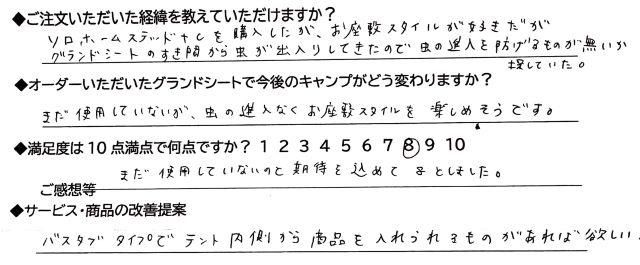 ◆ご注文いただいた経緯を教えていただけますか？
ソロホームステッドTCを購入したが、お座敷スタイルが好きだが
グランドシートのすき間から虫が出入りしてきたので虫の進入を防げるものが無いか
探していた。
◆オーダーいただいたグランドシートで今後のキャンプがどう変わりますか？
まだ使用していないが、虫の進入なくお座敷スタイルを楽しめそうです。
◆満足度は10点満点で何点ですか？ 1 2 3 4 5 6 7 8 9 10
まだ使用していないのと期待を込めて8としました。
ご感想等
◆サービス・商品の改善提案
バスタブタイプでテント内側から商品を入れられるものがあれば欲しい。